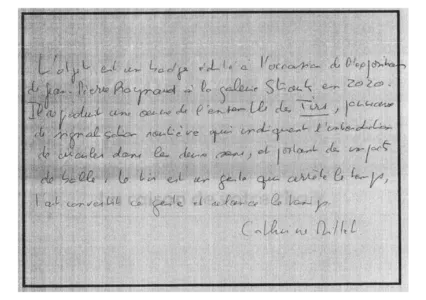 L'objet est un badge édité à l'occasion de l'exposition
de Jean-Pierre Raynaud à la galerie in 2020.
Il reproduit une œuvre de l'ensemble des Tirs, panneaux
de signalisation routière qui indiquent l'interdiction
de circuler dans les deux sens, et portant des impacts
de balle. Le tir est un geste qui arrête le temps,
l'art ce geste et le temps.
Catherine Millet